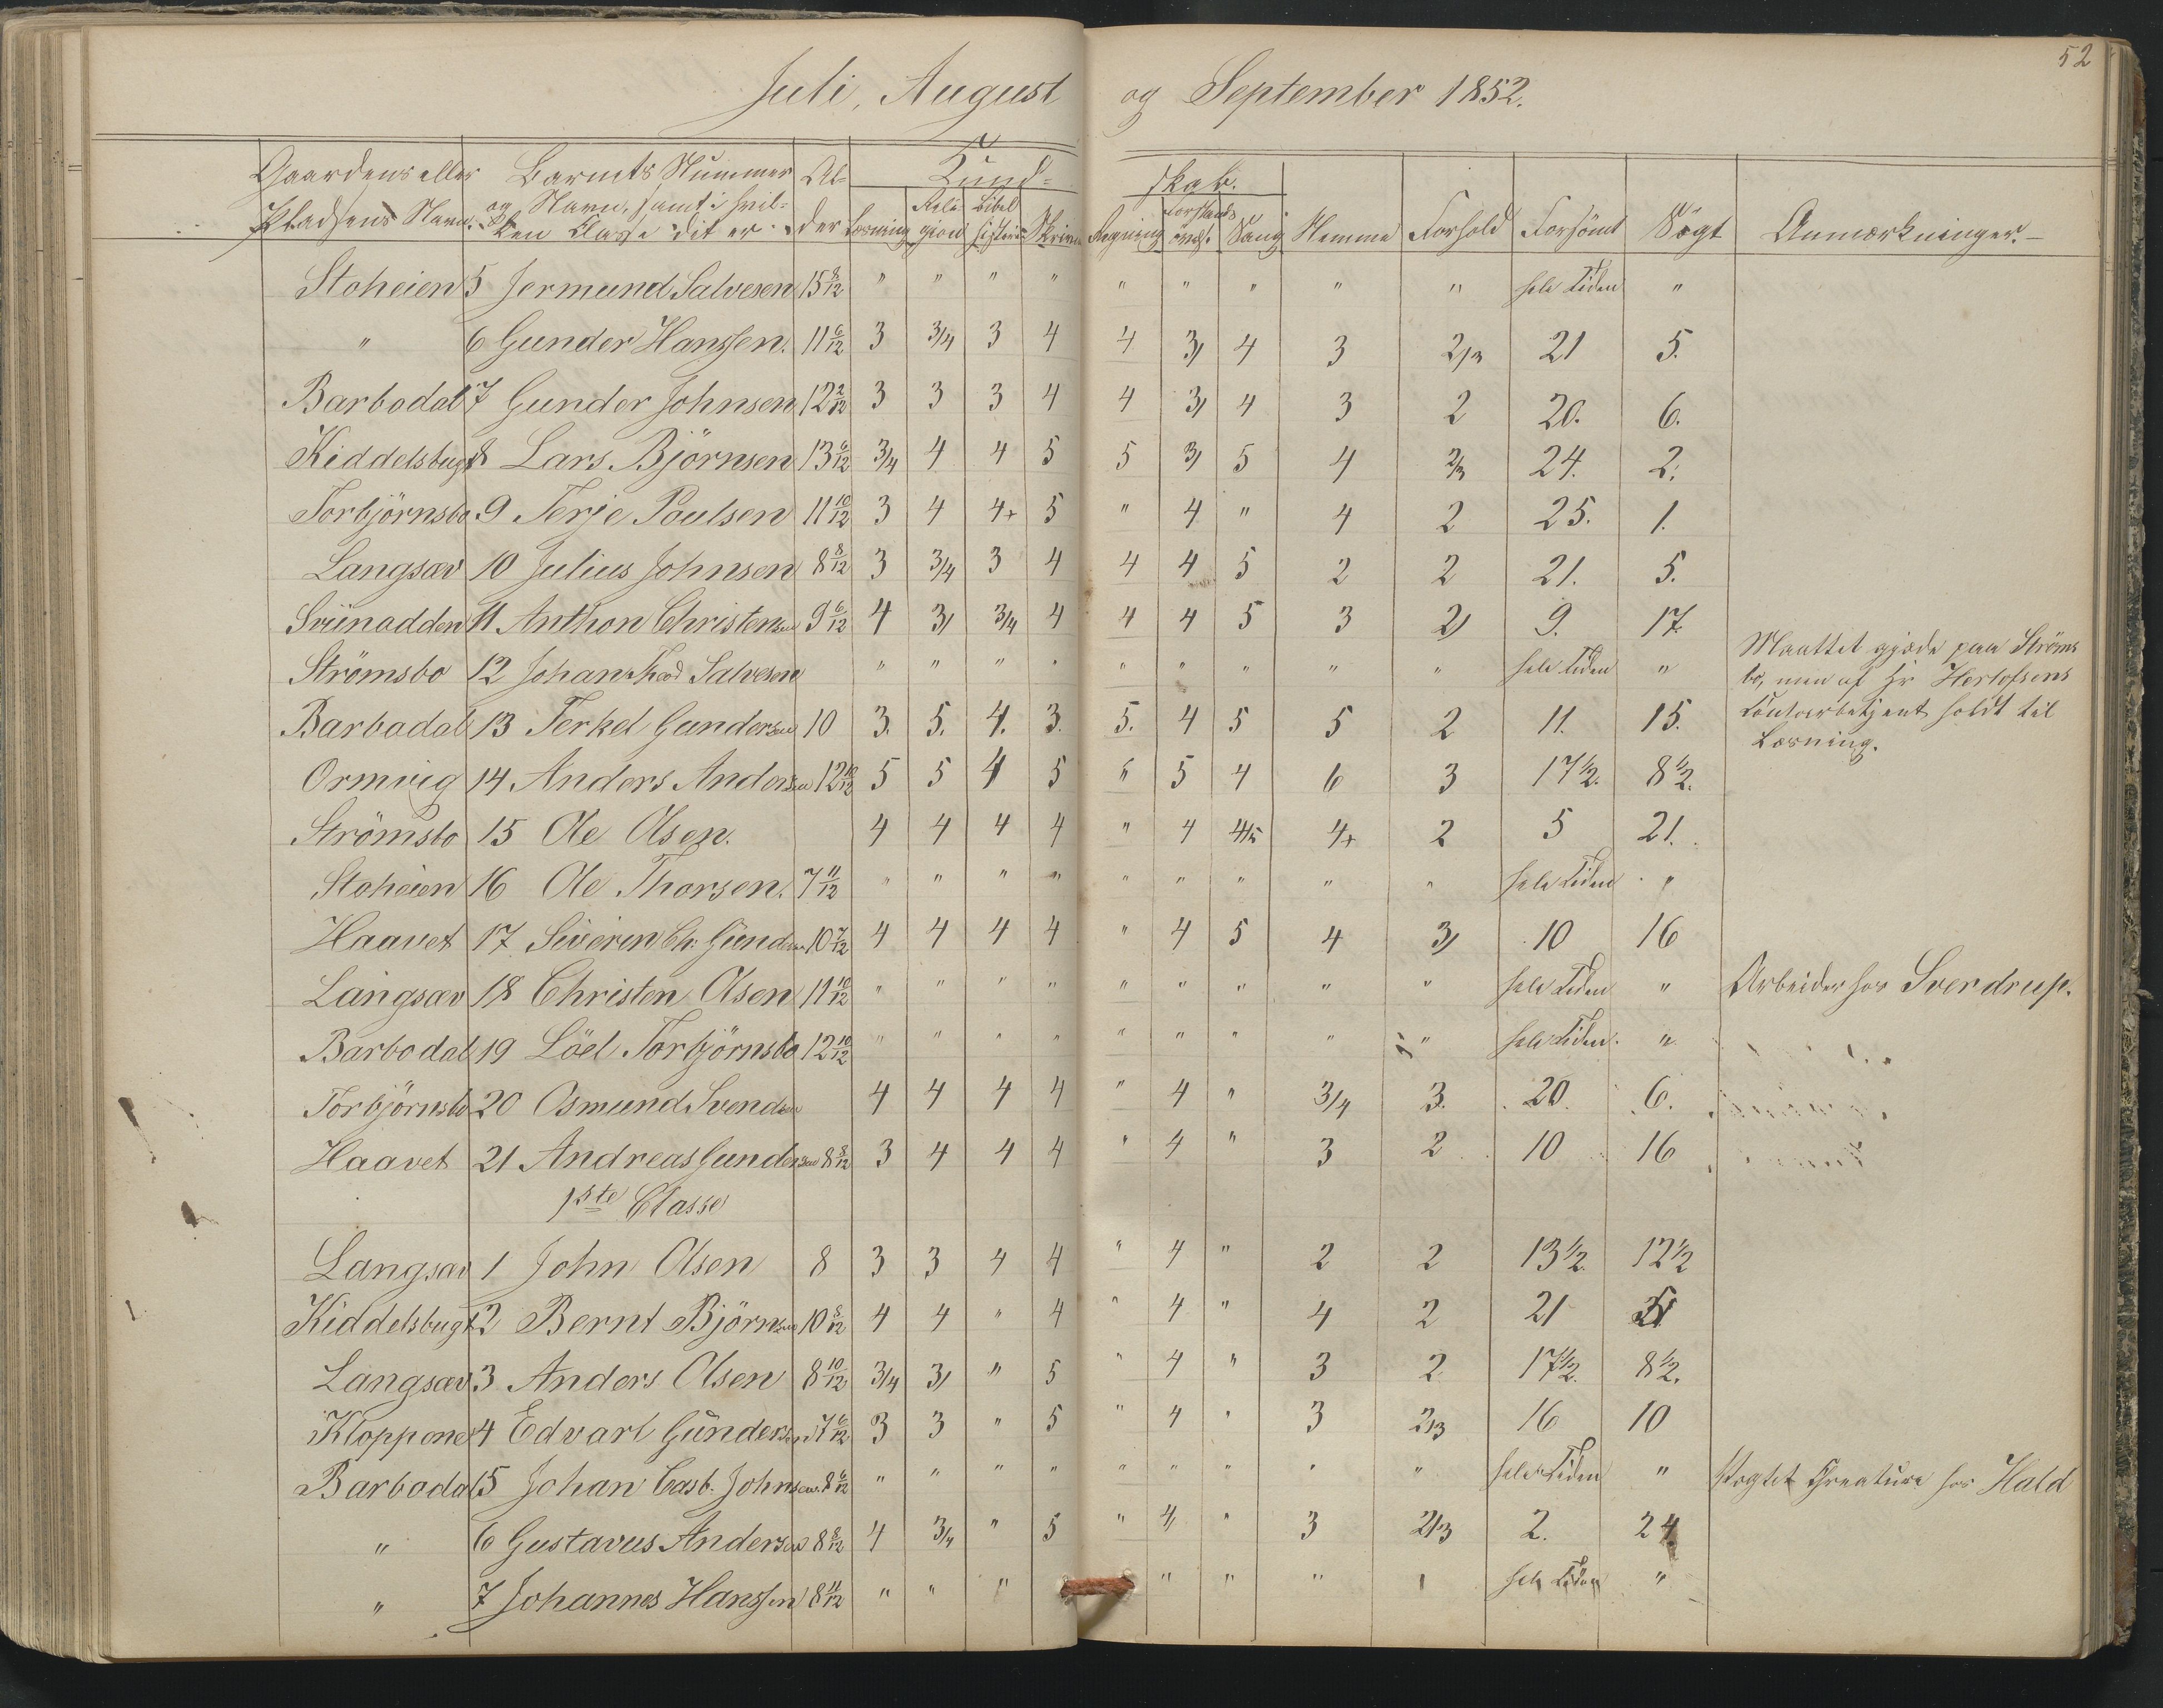 52
Juli, August og September 1852.
Gaardens eller Pladsens Navn. Barnets Nummer og Navn, samt i hvilken Classe det er Alder Kundskab. Nemme Forhold Forsömt Sögt Anmærkninger.
Læsning Religion Bibelhistorie Skrivn Regning Forstandsövels. Sang
Stoheien 5 Jermund Salvesen 15 8/12 " " " " " " " " " hele Tiden "
" 6 Gunder Hanssen. 11 6/12 3 3/4 3 4 4 3/ 4 3 2/3 21 5.
Barbodal 7 Gunder Johnsen 12 2/12 3 3 3 4 4 3/ 4 3 2 20. 6.
Kiddelsbugt 8 Lars Björnsen 13 6/12 3/4 4 4 5 5 3/ 5 4 2/3 24. 2.
Torbjörnsbo 9 Terje Poulsen 11 10/12 3 4 4+ 5 " 4 " 4 2 25. 1.
Langsæv 10 Julius Johnsen 8 8/12 3 3/4 3 4 4 4 5 2 2 21. 5.
Sviinodden 11 Anthon Christensen 9 6/12 4 3/ 3/4 4 4 4 5 3 2/ 9. 17.
Strömsbo 12 Johan Salvesen " " " " " " " " " hele Tiden " Maattet gjæde paa Ströms
bo, men af Hr Herlofsens
Barbodal 13 Terkel Gundersen 10 3. 5. 4. 3. 5. 4 5 5 2 11. 15. holdt til
Læsning.
Ormvig 14 Anders Andersen 12 10/12 5 5 4 5 " 5 4 6 3 17 1/2. 8 1/2.
Strömsbo 15 Ole Olsen. 4 4 4 4 " 4 4/5 4+ 2 5 21.
Stoheien 16 Ole Thorsen. 7 11/12 " " " " " " " " " hele Tiden "
Haavet 17 Siverin Ch: Gundersen 10 7/12 4 4 4 4 " 4 5 4 3/ 10 16
Langsæv 18 Christen Olsen 11 10/12 " " " " " " " " " hele Tiden " Arbeider hos Sverdrup.
Barbodal 19 Löel Torbjörnsbo 12 10/12 " " " " " " " " " hele Tiden. "
Torbjörnsbo 20 Osmund Svendsen 4 4 4 4 " 4 " 3/4 3. 20. 6.
Haavet 21 Andreas Gundersen 8 8/12 3 4 4 4 " 4 " 3 2 10 16
1ste Classe
Langsæv 1 John Olsen 8 3 3 4 4 " 4 " 2 2 13 1/2. 12 1/2
Kiddelsbugt 2 Bernt Björnsen 10 8/12 4 4 " 4 " 4 " 4 2 21 5
Langsæv 3 Anders Olsen 8 10/12 3/4 3/ " 5 " 4 " 3 2 17 1/2. 8 1/2.
Kloppene 4 Edvart Gundersen 7 6/12 3 3 " 5 " 4 " 3 2/3 16 10
Barbodal 5 Johan Casb. Johnsen. 8 6/12 " " " " " " " " " hele Tiden " Vogtet Creature hos Hald
" 6 Gustavus Andersen 8 8/12 4 3/4 " 5 " 4/ " 3 2/3 2. 24.
" 7 Johannes Hanssen 8 11/12 " " " " " " " hele Tiden "